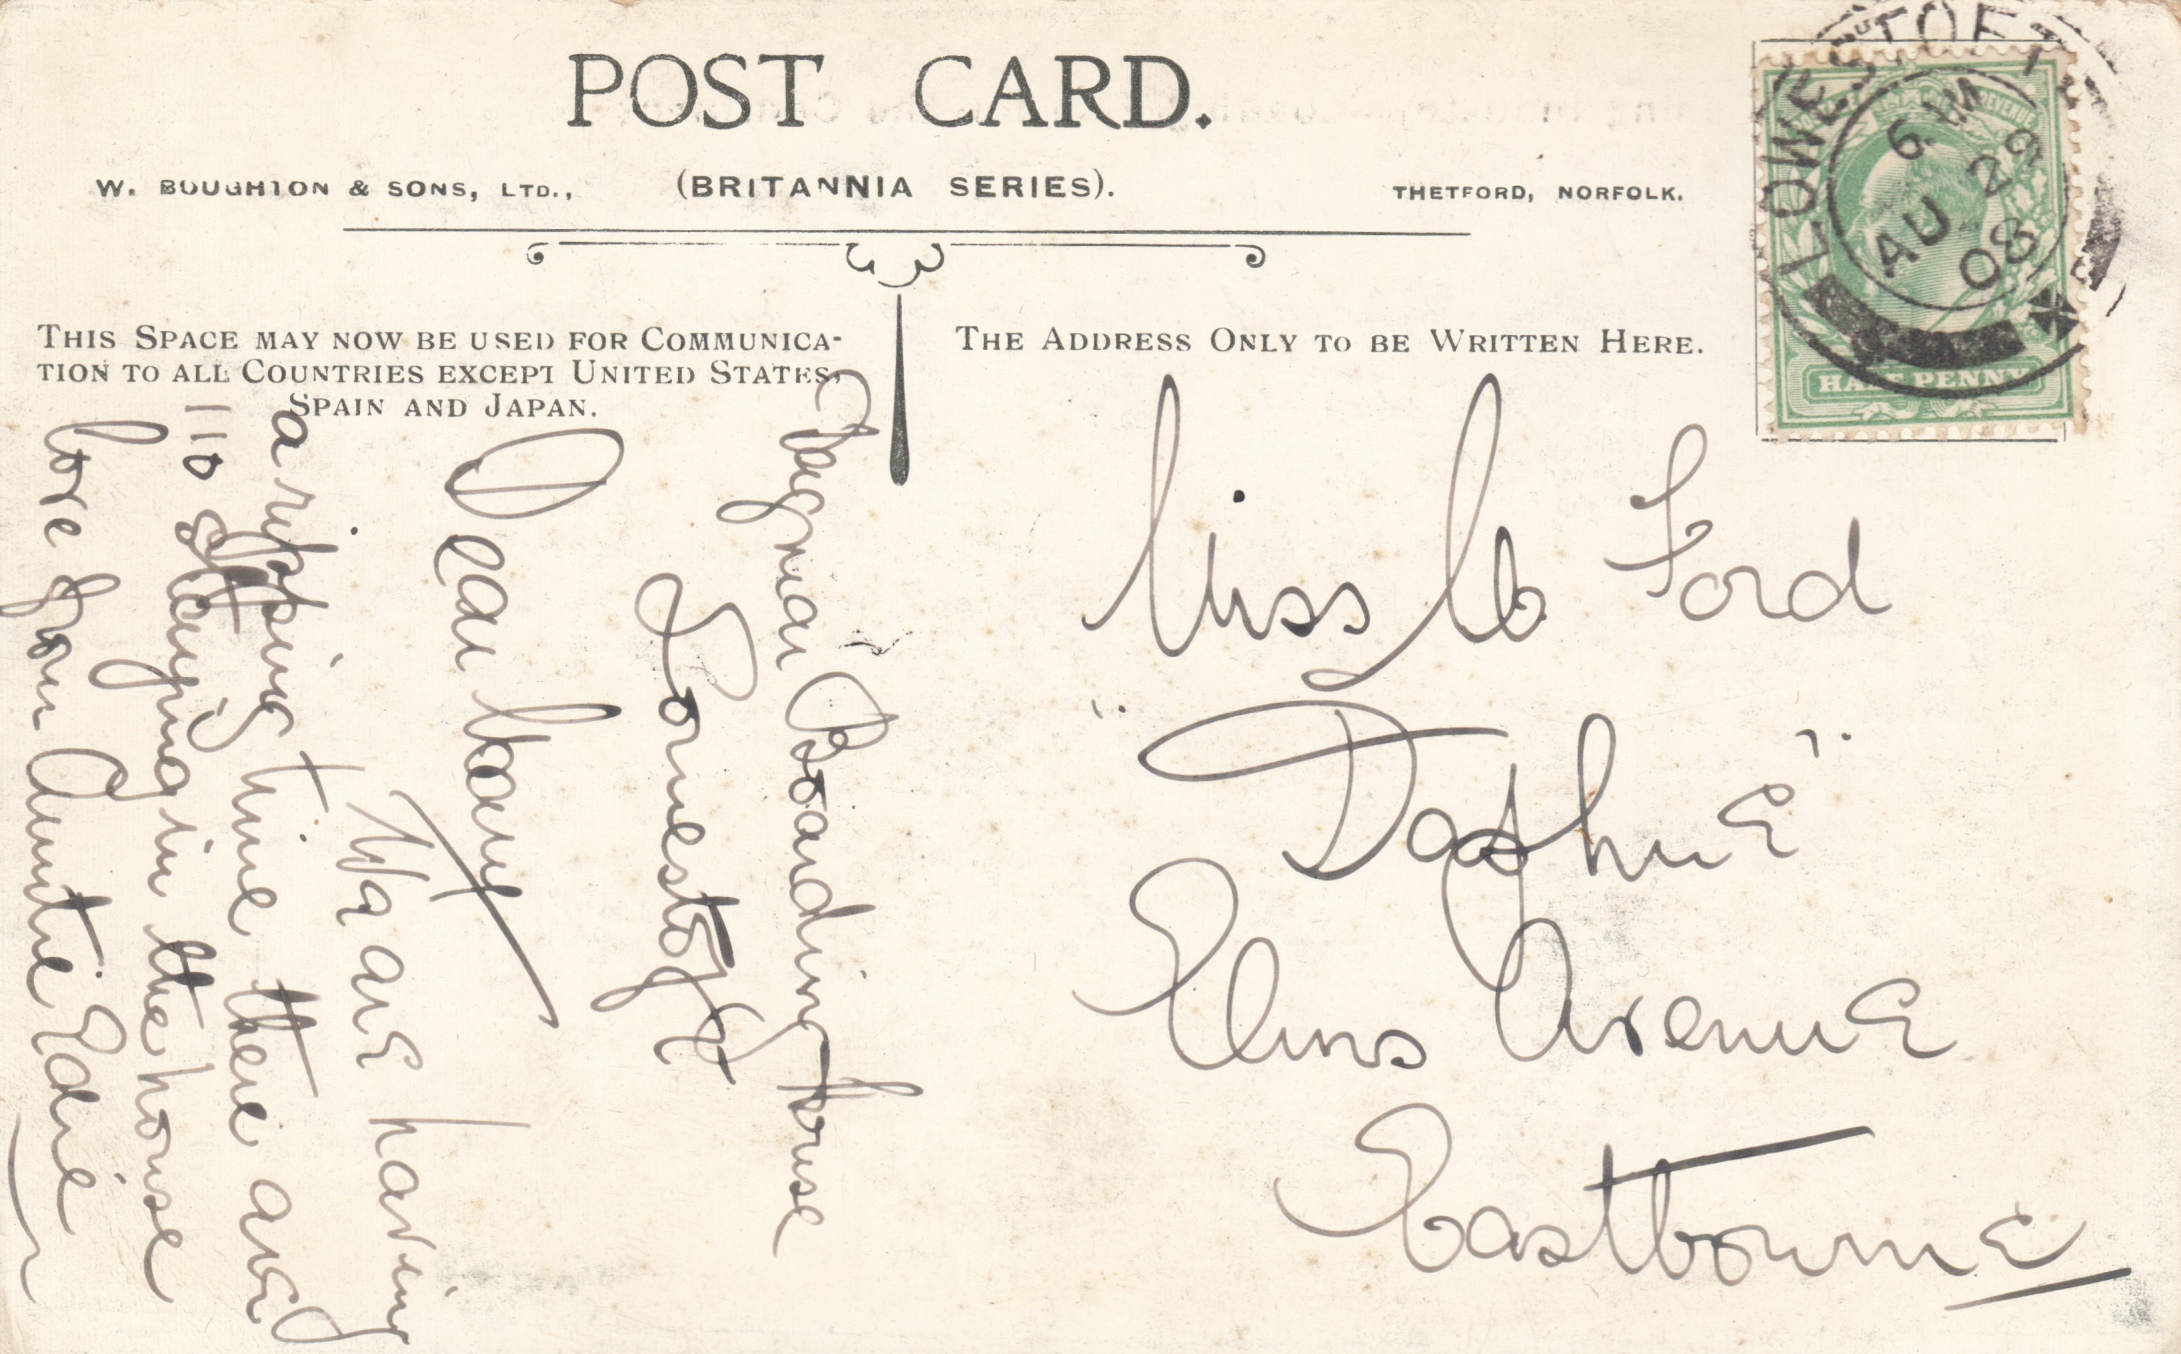 POST CARD.
W. BOUGHTON & SONS, LTD., (BRITANNIA SERIES). THETFORD, NORFOLK.
THIS SPACE MAY NOW BE USED FOR COMMUNICA-
TION TO ALL COUNTRIES EXCEPT UNITED STATES,
SPAIN AND JAPAN.
THE ADDRESS ONLY TO BE WRITTEN HERE.
LOWESTOFT
6
AU 29
08
HALF PENNY
Miss Ford
"Daphne"
Elms Avenue
Eastbourne
Dagmar Boarding house
Lowestoft
Dear
We are having
a ripping time there are
110 staying in the house
love from Auntie Edie